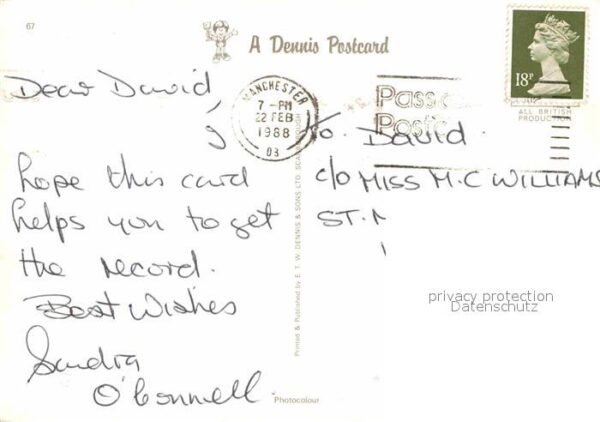 67
A Dennis Postcard
18P
Dear David,
MANCHESTER
7 - PM
22 FEB
1988
03
ALL BRITISH
PRODUCTION
I
hope this card
helps you to get
the record.
Best Wishes
Sandra
O'Connell.
to. David.
c/o MISS M.C WILLIAMS
ST.
Printed & Published by E. T. W. DENNIS & SONS LTD. SCARBOROUGH
Photocolour
privacy protection
Datenschutz